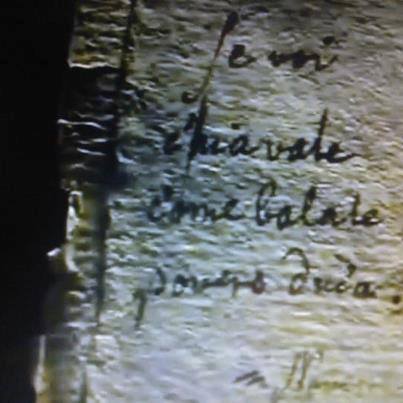 Se voi
chiavate
come balate
povero duca.